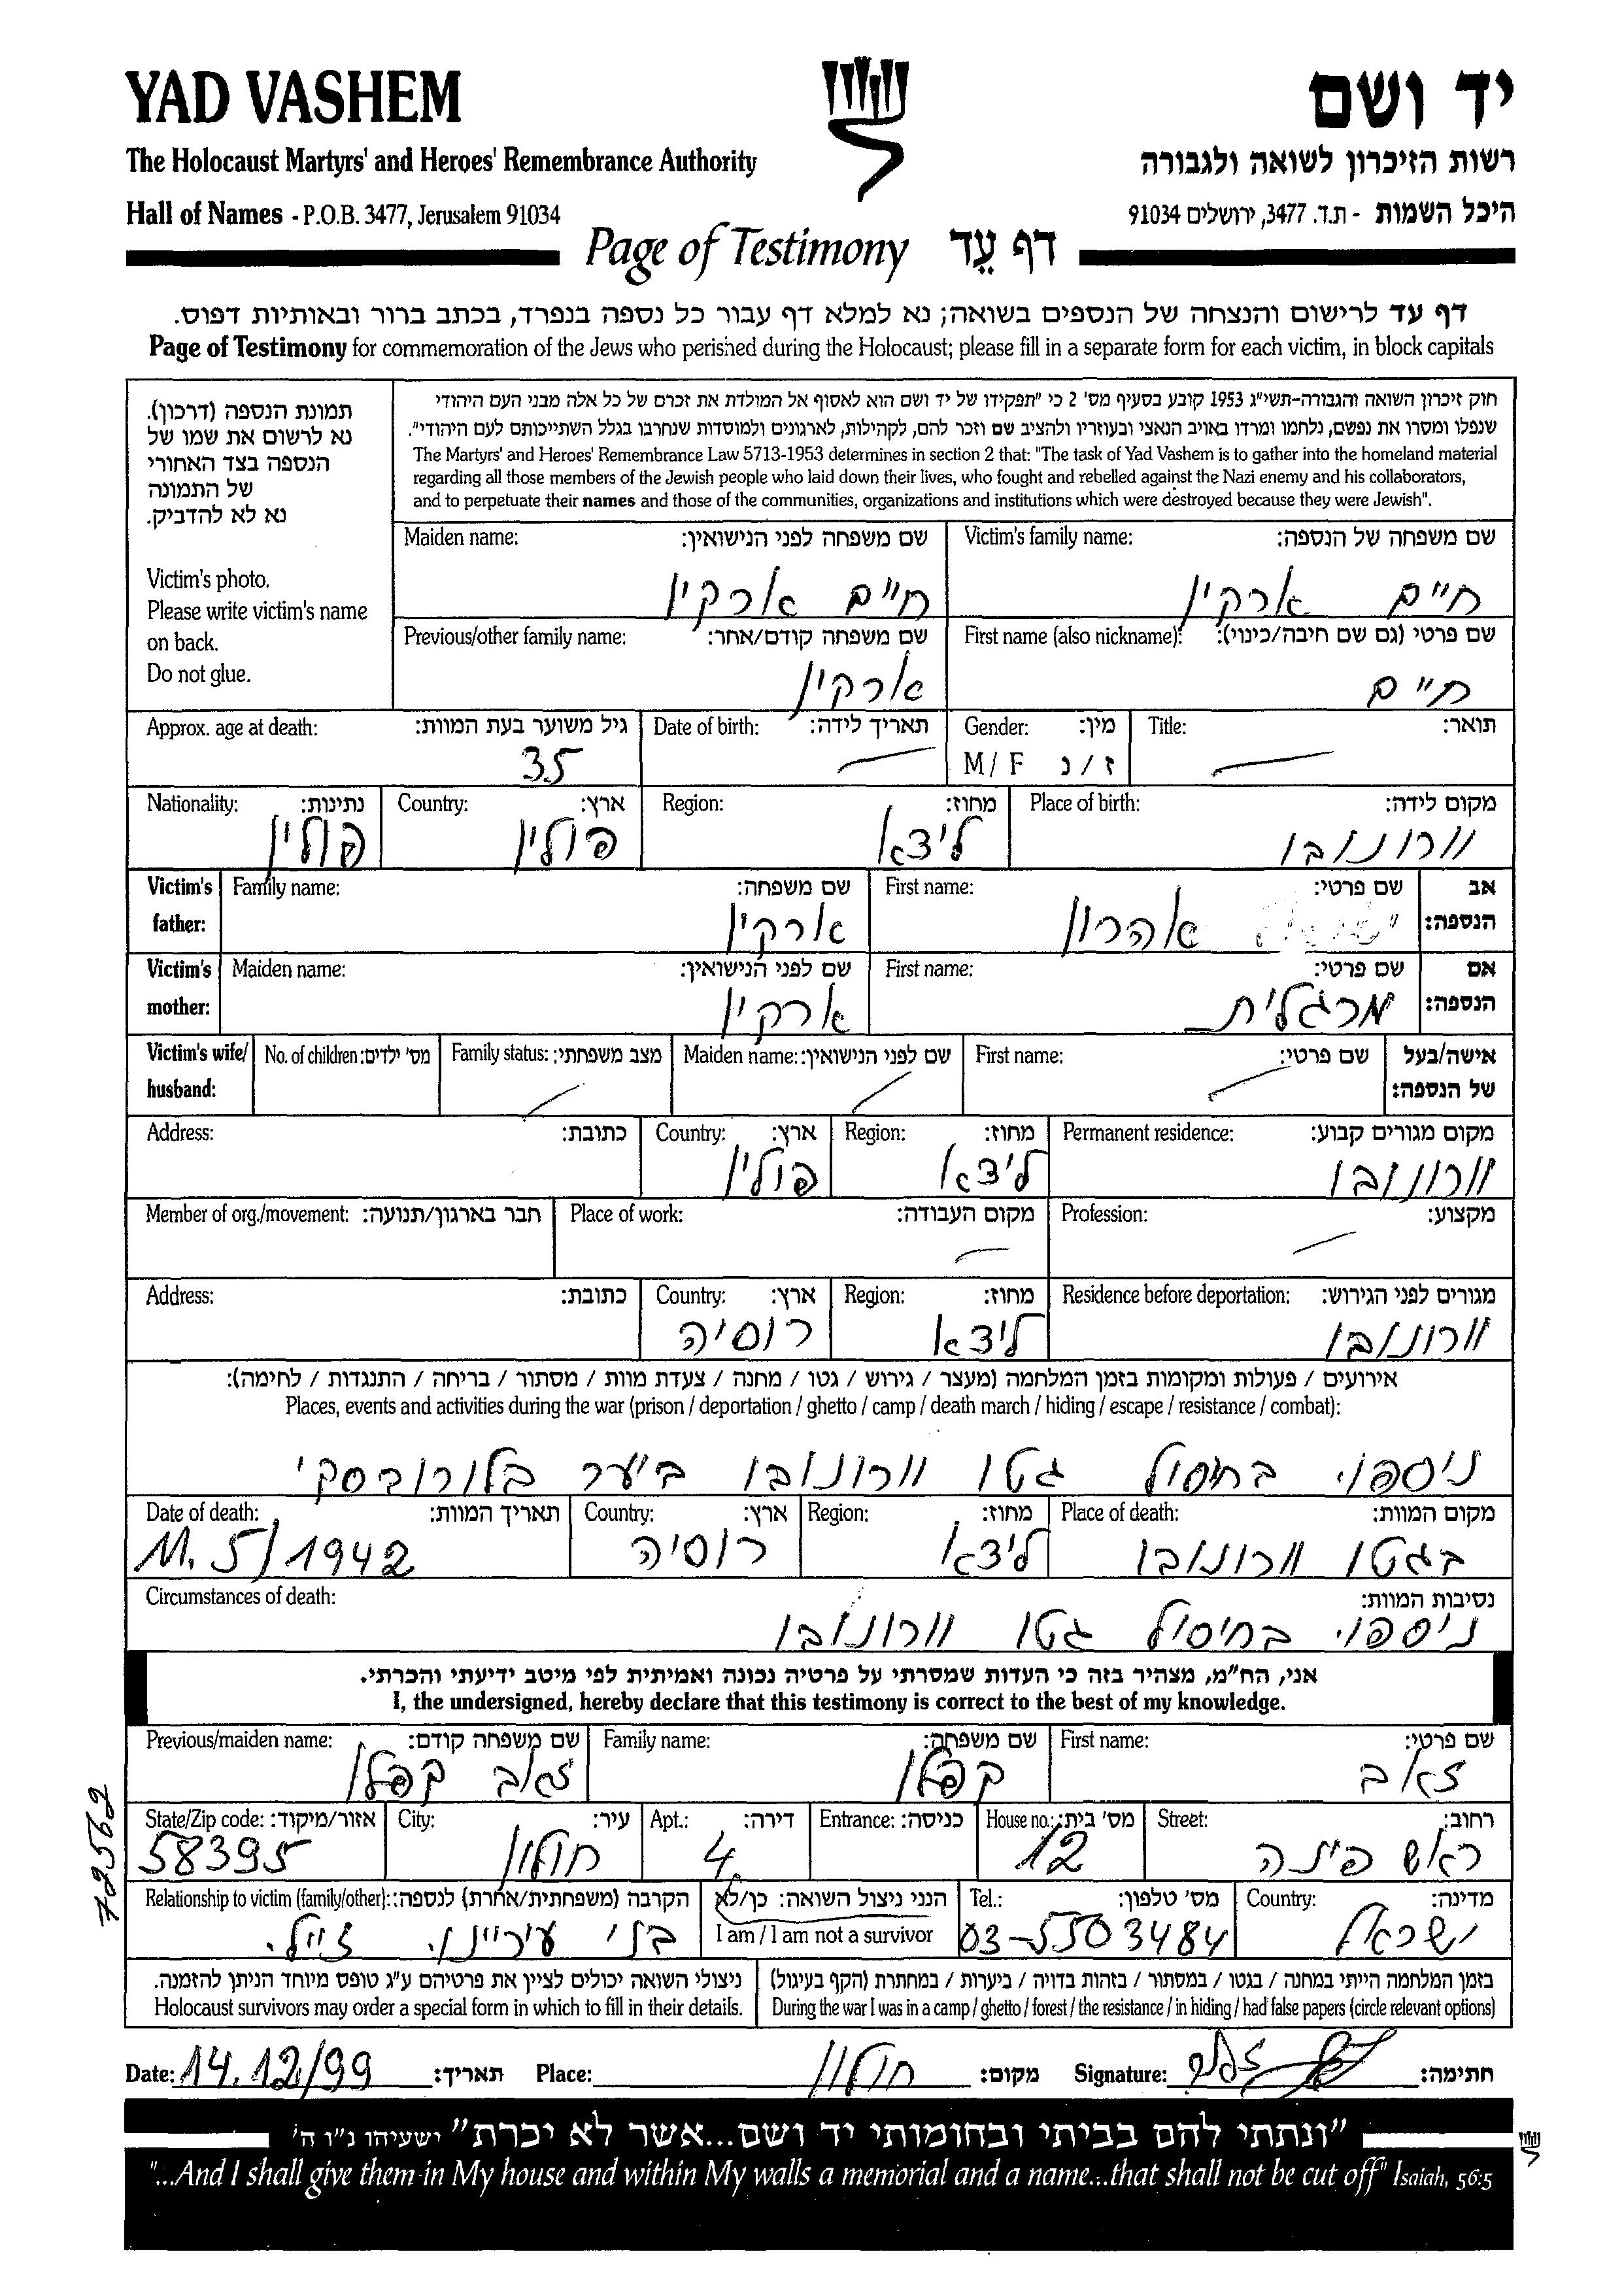 YAD VASHEM
יד ושם
The Holocaust Martyrs' and Heroes' Remembrance Authority
רשות הזיכרון לשואה ולגבורה
Hall of Names - P.O.B. 3477, Jerusalem 91034
היכל השמות - ת.ד. 3477, ירושלים 91034
Page of Testimony דף עֵד
דף עד לרישום והנצחה של הנספים בשואה; נא למלא דף עבור כל נספה בנפרד, בכתב ברור ובאותיות דפוס.
Page of Testimony for commemoration of the Jews who perished during the Holocaust; please fill in a separate form for each victim, in block capitals
תמונת הנספה (דרכון).
נא לרשום את שמו של
הנספה בצד האחורי
של התמונה
נא לא להדביק.
Victim's photo.
Please write victim's name
on back.
Do not glue.
חוק זיכרון השואה והגבורה-תשי"ג 1953 קובע בסעיף מס' 2 כי "תפקידו של יד ושם הוא לאסוף אל המולדת את זכרם של כל אלה מבני העם היהודי
שנפלו ומסרו את נפשם, נלחמו ומרדו באויב הנאצי ובעוזריו ולהציב שם וזכר להם, לקהילות, לארגונים ולמוסדות שנחרבו בגלל השתייכותם לעם היהודי".
The Martyrs' and Heroes' Remembrance Law 5713-1953 determines in section 2 that: "The task of Yad Vashem is to gather into the homeland material
regarding all those members of the Jewish people who laid down their lives, who fought and rebelled against the Nazi enemy and his collaborators,
and to perpetuate their names and those of the communities, organizations and institutions which were destroyed because they were Jewish".
Victim's family name: שם משפחה של הנספה:
חיים ארקין
Maiden name: שם משפחה לפני הנישואין:
חיים ארקין
First name (also nickname): שם פרטי (גם שם חיבה/כינוי):
חיים
Previous/other family name: שם משפחה קודם/אחר:
ארקין
Title: תואר:
Gender: מין:
M / F ז / נ
Date of birth: תאריך לידה:
Approx. age at death: גיל משוער בעת המוות:
35
Place of birth: מקום לידה:
וורונובו
Region: מחוז:
לידא
Country: ארץ:
פולין
Nationality: נתינות:
פולין
Victim's father: אב הנספה:
First name: שם פרטי:
אהרון
Family name: שם משפחה:
ארקין
Victim's mother: אם הנספה:
First name: שם פרטי:
מרגלית
Maiden name: שם לפני הנישואין:
ארקין
Victim's wife/ husband: אישה/בעל של הנספה:
First name: שם פרטי:
Maiden name: שם לפני הנישואין:
Family status: מצב משפחתי:
No. of children: מס' ילדים:
Permanent residence: מקום מגורים קבוע:
וורונובו
Region: מחוז:
לידא
Country: ארץ:
פולין
Address: כתובת:
Profession: מקצוע:
Place of work: מקום העבודה:
Member of org./movement: חבר בארגון/תנועה:
Residence before deportation: מגורים לפני הגירוש:
וורונובו
Region: מחוז:
לידא
Country: ארץ:
רוסיה
Address: כתובת:
אירועים / פעולות ומקומות בזמן המלחמה (מעצר / גירוש / גטו / מחנה / צעדת מוות / מסתור / בריחה / התנגדות / לחימה):
Places, events and activities during the war (prison / deportation / ghetto / camp / death march / hiding / escape / resistance / combat):
ניספו בחיסול גטו וורונובו ביער בלורובסקי
Place of death: מקום המוות:
בגטו וורונובו
Region: מחוז:
לידא
Country: ארץ:
רוסיה
Date of death: תאריך המוות:
11.5/1942
Circumstances of death: נסיבות המוות:
ניספו בחיסול גטו וורונובו
אני, הח"מ, מצהיר בזה כי העדות שמסרתי על פרטיה נכונה ואמיתית לפי מיטב ידיעתי והכרתי.
I, the undersigned, hereby declare that this testimony is correct to the best of my knowledge.
First name: שם פרטי:
זאב
Family name: שם משפחה:
קפלן
Previous/maiden name: שם משפחה קודם:
זאב קפלן
Street: רחוב:
ראש פינה
House no.: מס' בית:
12
Entrance: כניסה:
Apt.: דירה:
4
City: עיר:
חולון
State/Zip code: אזור/מיקוד:
58395
72562
Country: מדינה:
ישראל
Tel.: מס' טלפון:
03-5503484
הנני ניצול השואה: כן/לא
I am / I am not a survivor
Relationship to victim (family/other): הקרבה (משפחתית/אחרת) לנספה:
בני עיריינו
בזמן המלחמה הייתי במחנה / בגטו / במסתור / בזהות בדויה / ביערות / במחתרת (הקף בעיגול)
During the war I was in a camp / ghetto / forest / the resistance / in hiding / had false papers (circle relevant options)
ניצולי השואה יכולים לציין את פרטיהם ע"ג טופס מיוחד הניתן להזמנה.
Holocaust survivors may order a special form in which to fill in their details.
Date: 14.12/99 תאריך: Place: חולון מקום: Signature: חתימה:
"ונתתי להם בביתי ובחומותי יד ושם...אשר לא יכרת" ישעיהו נ"ו ה'
"...And I shall give them in My house and within My walls a memorial and a name...that shall not be cut off" Isaiah, 56:5